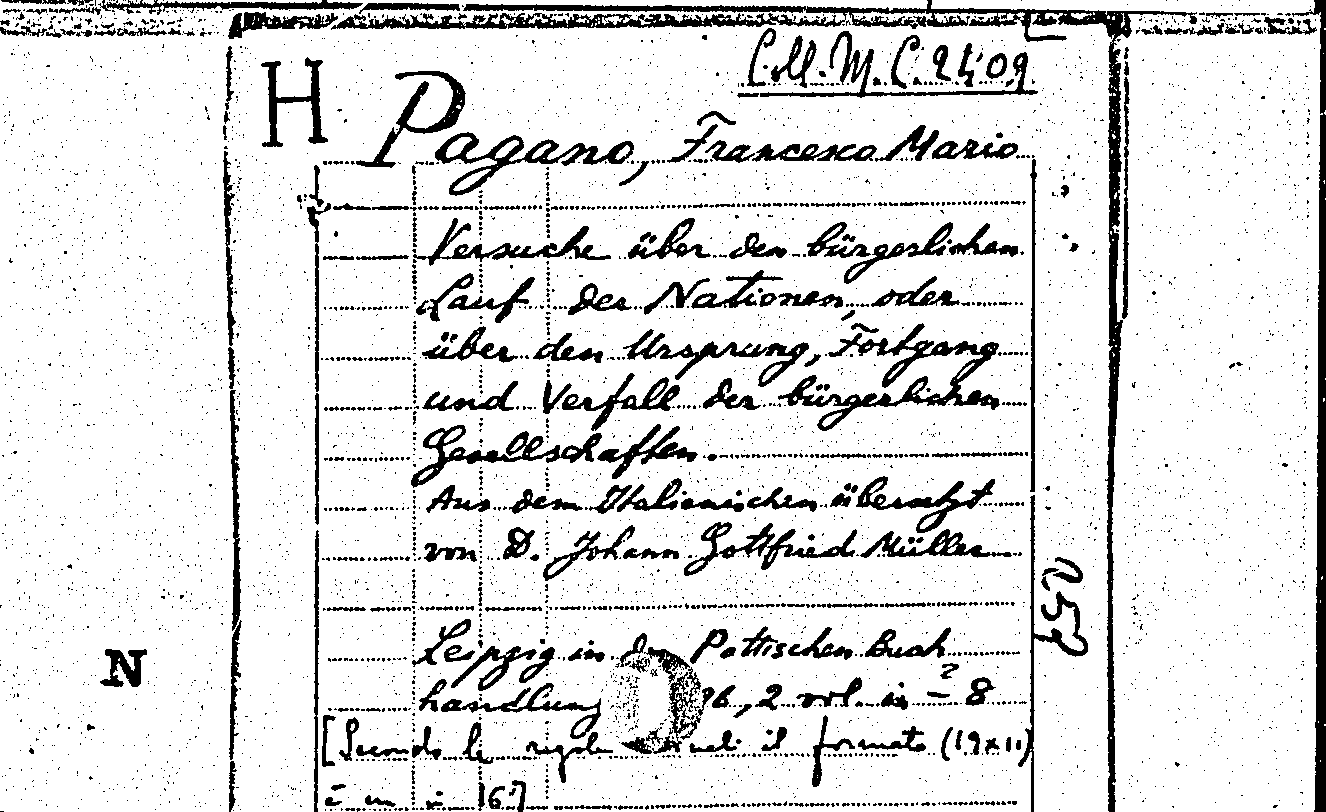 Coll. M. C. 2409
H Pagano, Francesco Mario
Versuche über den bürgerlichen
Lauf der Nationen, oder
über den Ursprung, Fortgang
und Verfall der bürgerlichen
Gesellschaften.
Aus dem Italienischen übersetzt
von D. Johann Gottfried Müller.
053
Leipzig in der Pottischen Buch
N
handlung 96, 2 vol. in - 8
[Secondo le regole il formato (19x11)
è un in 16°]